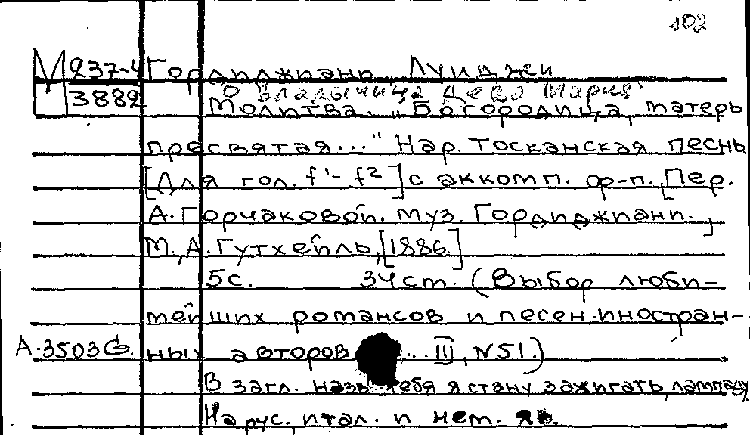 102
М 237-4 Гордиджиани, Луиджи
О Владычица Дева Мария
3882 Молитва. „Богородица, матерь
пресвятая..." Нар. тосканская песнь
[Для гол. f¹-f²] с аккомп. ф-п. [Пер.
А. Горчаковой. Муз. Гордиджиани.,
М., А. Гутхейль, [1886]
5с. 34 ст. (Выбор люби-
мейших романсов и песен иностран-
А.3503G. ных авторов ... III, N51.)
В загл. назв. тебя я стану зажигать лампаду
На рус., итал. и нем. яз.